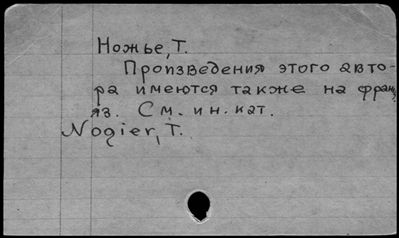 Ножье, Т.
Произведения этого авто-
ра имеются также на франц.
яз. См. ин. кат.
Nogier, T.